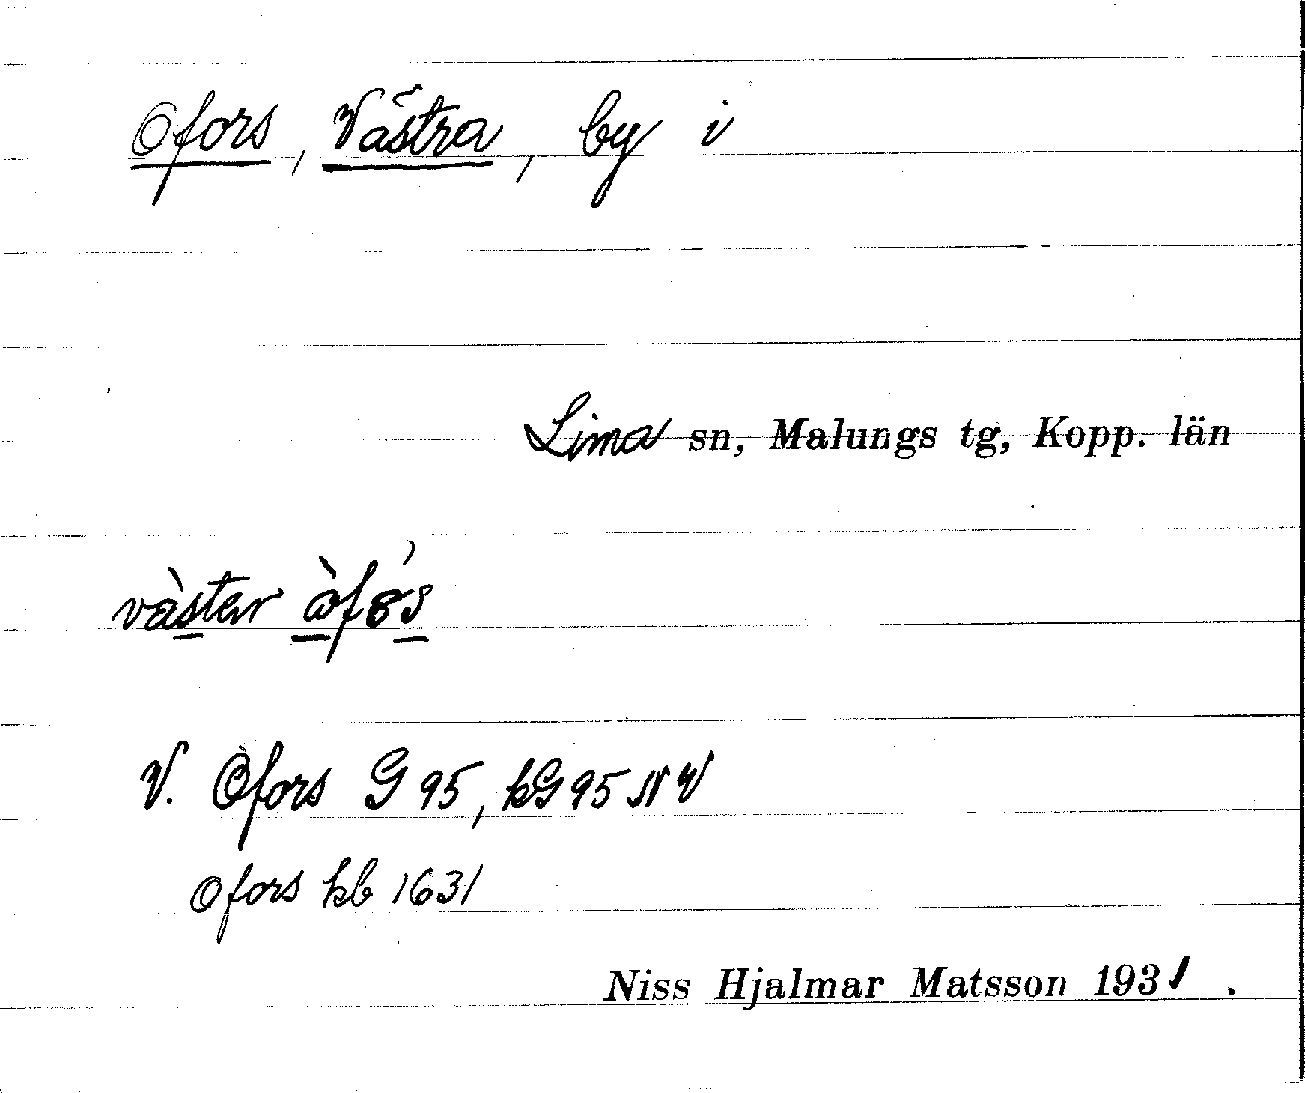 Ofors, Västra, by i
Lima sn, Malungs tg, Kopp. län
väster åfo's
V. Ofors G 95, kG 95 NV
Ofors kb 1631
Niss Hjalmar Matsson 1931.